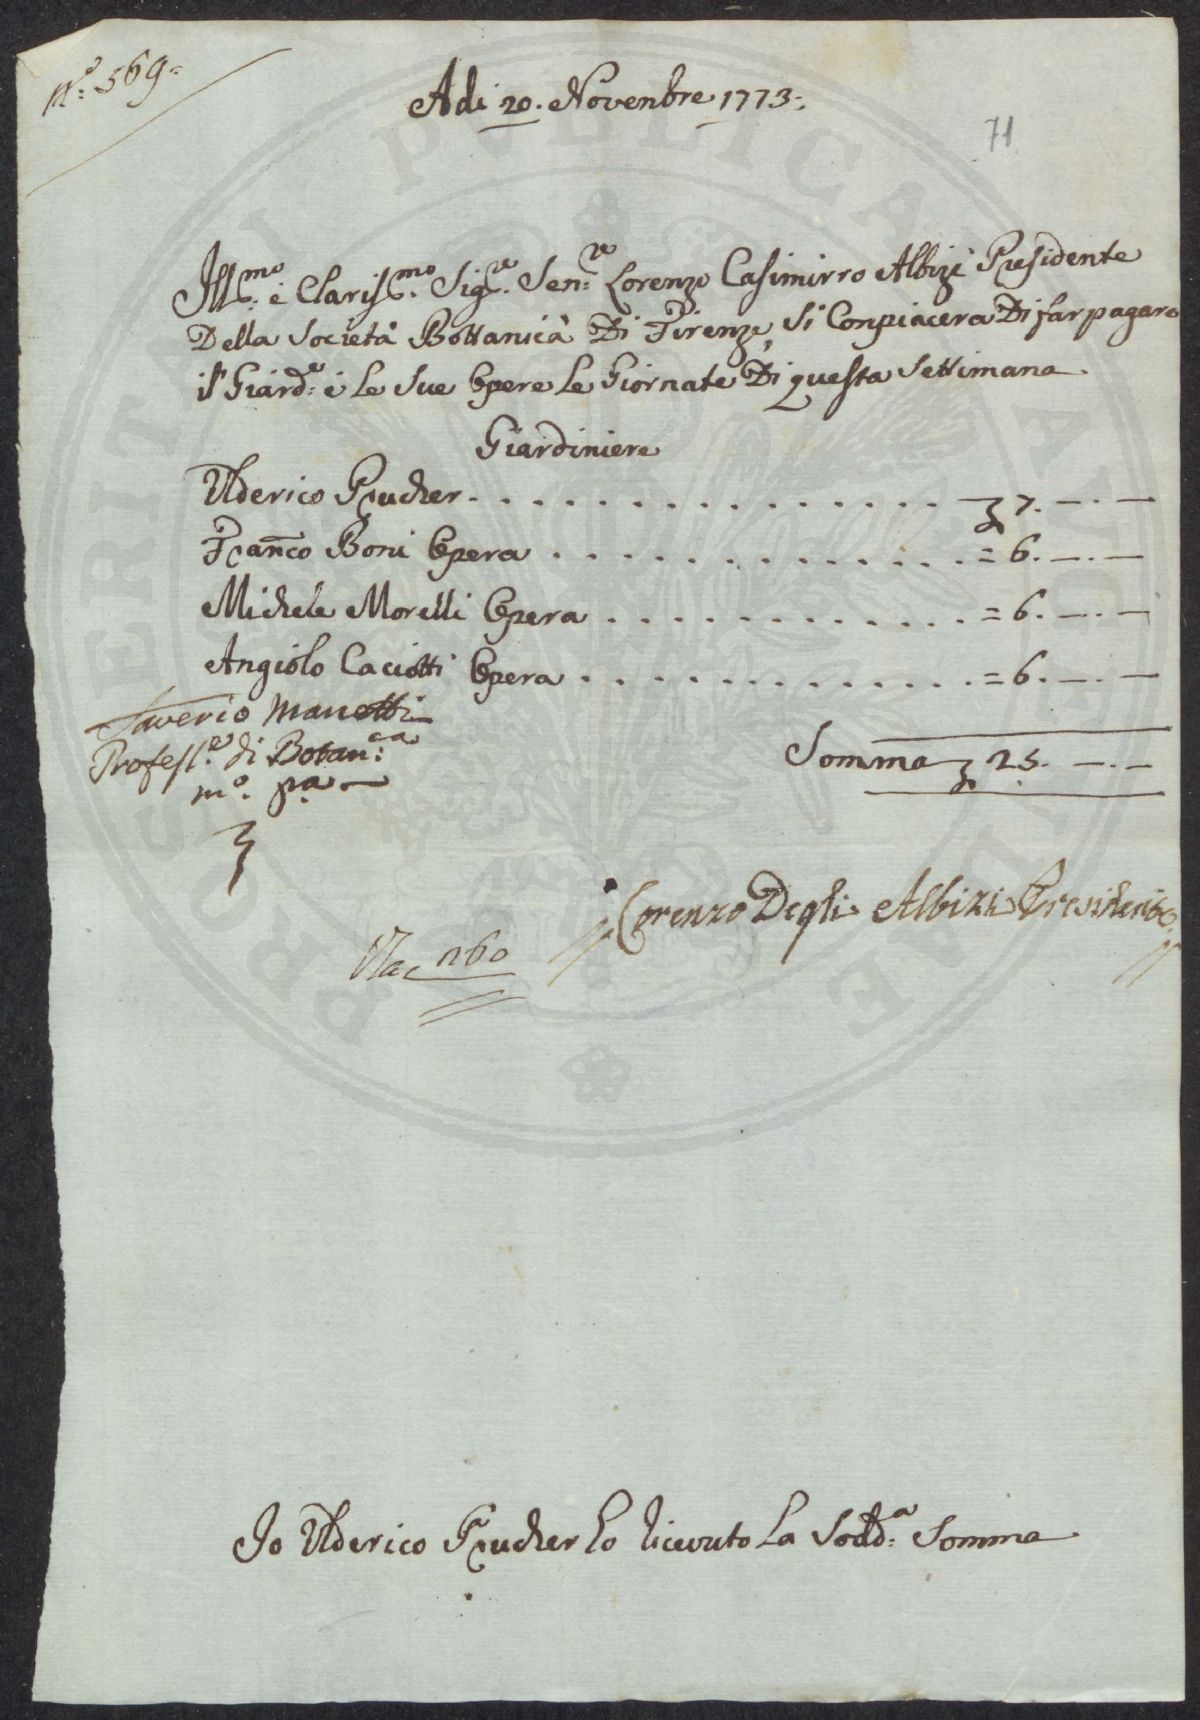 N.º 569=
Adi 20. Novenbre 1773=
71
Ill.mo e Claris.mo Sig.re Sen.re Lorenzo Casimirro Albizi Presidente
Della Società Bottanica Di Firenze, Si Conpiacera Di far pagare
il Giard.e e le Sue Opere Le Giornate Di questa Settimana
Giardiniere
Ulderico Prucher . . . . . . . . . . . . . . . £ 7. —.—
Franco Boni Opera . . . . . . . . . . . . . = 6. —.—
Michele Morelli Opera . . . . . . . . . . . . = 6. —.—
Angiolo Caciotti Opera . . . . . . . . . . . . . = 6. —.—
Saverio Manetti
Profess.e di Botan.ca
m.º p.a
Somma £ 25. —.—
Lorenzo Degli Albizi Presidente
260
Io Ulderico Prucher ho ricevuto La Sodd.a Somma
PROSPERITATI PUBLICAE AUGENDAE